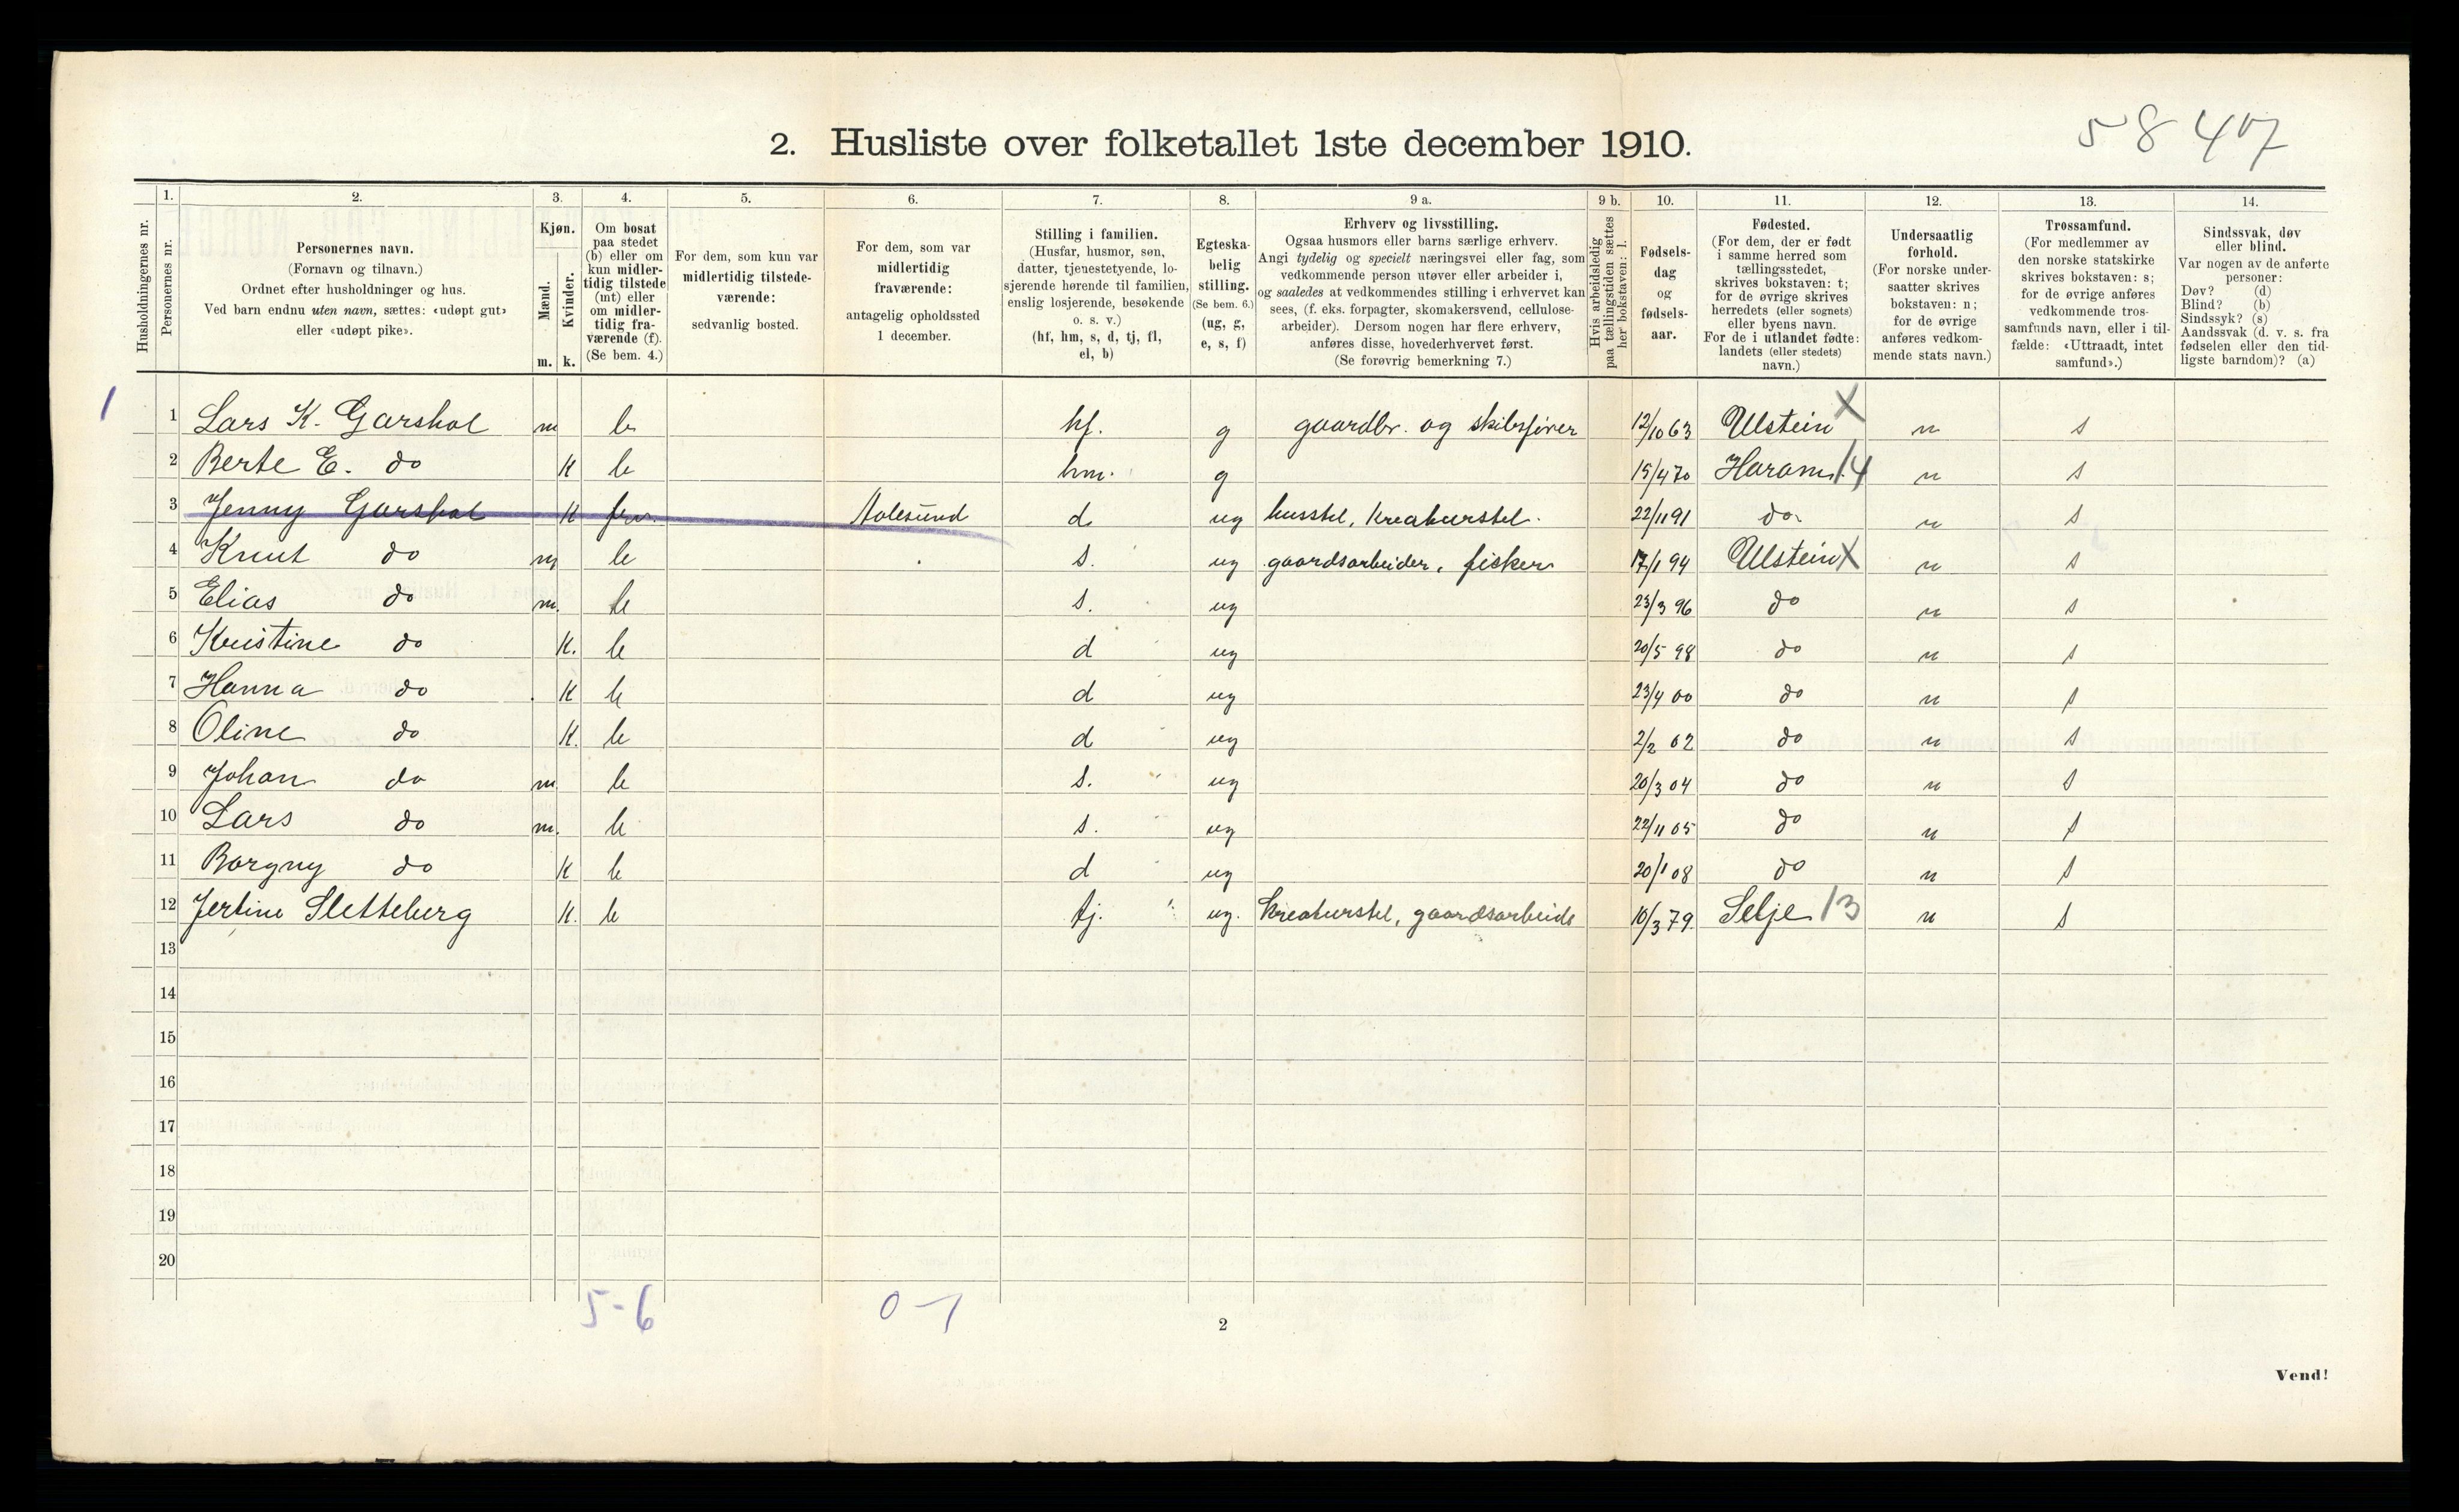 58 407
2. Husliste over folketallet 1ste december 1910.
Husholdningernes nr.
1.
Personernes nr.
2.
Personernes navn.
(Fornavn og tilnavn.)
Ordnet efter husholdninger og hus.
Ved barn endnu uten navn, sættes: «udøpt gut»
eller «udøpt pike».
3.
Kjøn.
Mænd.
m.
Kvinder.
k.
4.
Om bosat
paa stedet
(b) eller om
kun midler-
tidig tilstede
(mt) eller
om midler-
tidig fra-
værende (f).
(Se bem. 4.)
5.
For dem, som kun var
midlertidig tilstede-
værende:
sedvanlig bosted.
6.
For dem, som var
midlertidig
fraværende:
antagelig opholdssted
1 december.
7.
Stilling i familien.
(Husfar, husmor, søn,
datter, tjenestetyende, lo-
sjerende hørende til familien,
enslig losjerende, besøkende
o. s. v.)
(hf, hm, s, d, tj, fl,
el, b)
8.
Egteska-
belig
stilling.
(Se bem. 6.)
(ug, g,
e, s, f)
9 a.
Erhverv og livsstilling.
Ogsaa husmors eller barns særlige erhverv.
Angi tydelig og specielt næringsvei eller fag, som
vedkommende person utøver eller arbeider i,
og saaledes at vedkommendes stilling i erhvervet kan
sees, (f. eks. forpagter, skomakersvend, cellulose-
arbeider). Dersom nogen har flere erhverv,
anføres disse, hovederhvervet først.
(Se forøvrig bemerkning 7.)
9 b.
Hvis arbeidsledig
paa tællingstiden sættes
her bokstaven: l.
10.
Fødsels-
dag
og
fødsels-
aar.
11.
Fødested.
(For dem, der er født
i samme herred som
tællingsstedet,
skrives bokstaven: t;
for de øvrige skrives
herredets (eller sognets)
eller byens navn.
For de i utlandet fødte:
landets (eller stedets)
navn.)
12.
Undersaatlig
forhold.
(For norske under-
saatter skrives
bokstaven: n;
for de øvrige
anføres vedkom-
mende stats navn.)
13.
Trossamfund.
(For medlemmer av
den norske statskirke
skrives bokstaven: s;
for de øvrige anføres
vedkommende tros-
samfunds navn, eller i til-
fælde: «Uttraadt, intet
samfund».)
14.
Sindssvak, døv
eller blind.
Var nogen av de anførte
personer:
Døv? (d)
Blind? (b)
Sindssyk? (s)
Aandssvak (d. v. s. fra
fødselen eller den tid-
ligste barndom)? (a)
1 1 Lars K. Garshol m b hf. g gaardbr. og skibsfører 12/10 63 Ulstein X n s
2 Berte E. do K b hm. g 15/4 70 Haram 14 n s
3 Jenny Garshol K Aalesund d ug husstel, kreaturstel. 22/11 91 do n s
4 Knut do m b s. ug gaardsarbeider, fisker 17/1 94 Ulstein X n s
5 Elias do m. b s. ug 23/3 96 do n s
6 Kristine do K. b d ug 20/5 98 do n s
7 Hanna do K b d ug 23/4 00 do n s
8 Oline do K. b d ug 2/2 02 do n s
9 Johan do m b s. ug 20/3 04 do n s
10 Lars do m. b s. ug 22/11 05 do n s
11 Borgny do K b d ug 20/1 08 do n s
12 Jertine Sletteberg K. b tj. ug. kreaturstel, gaardsarbeide 10/3 79. Selje 13 n s
13
14
15
16
17
18
19
20
5-6 0-1
2
Vend!